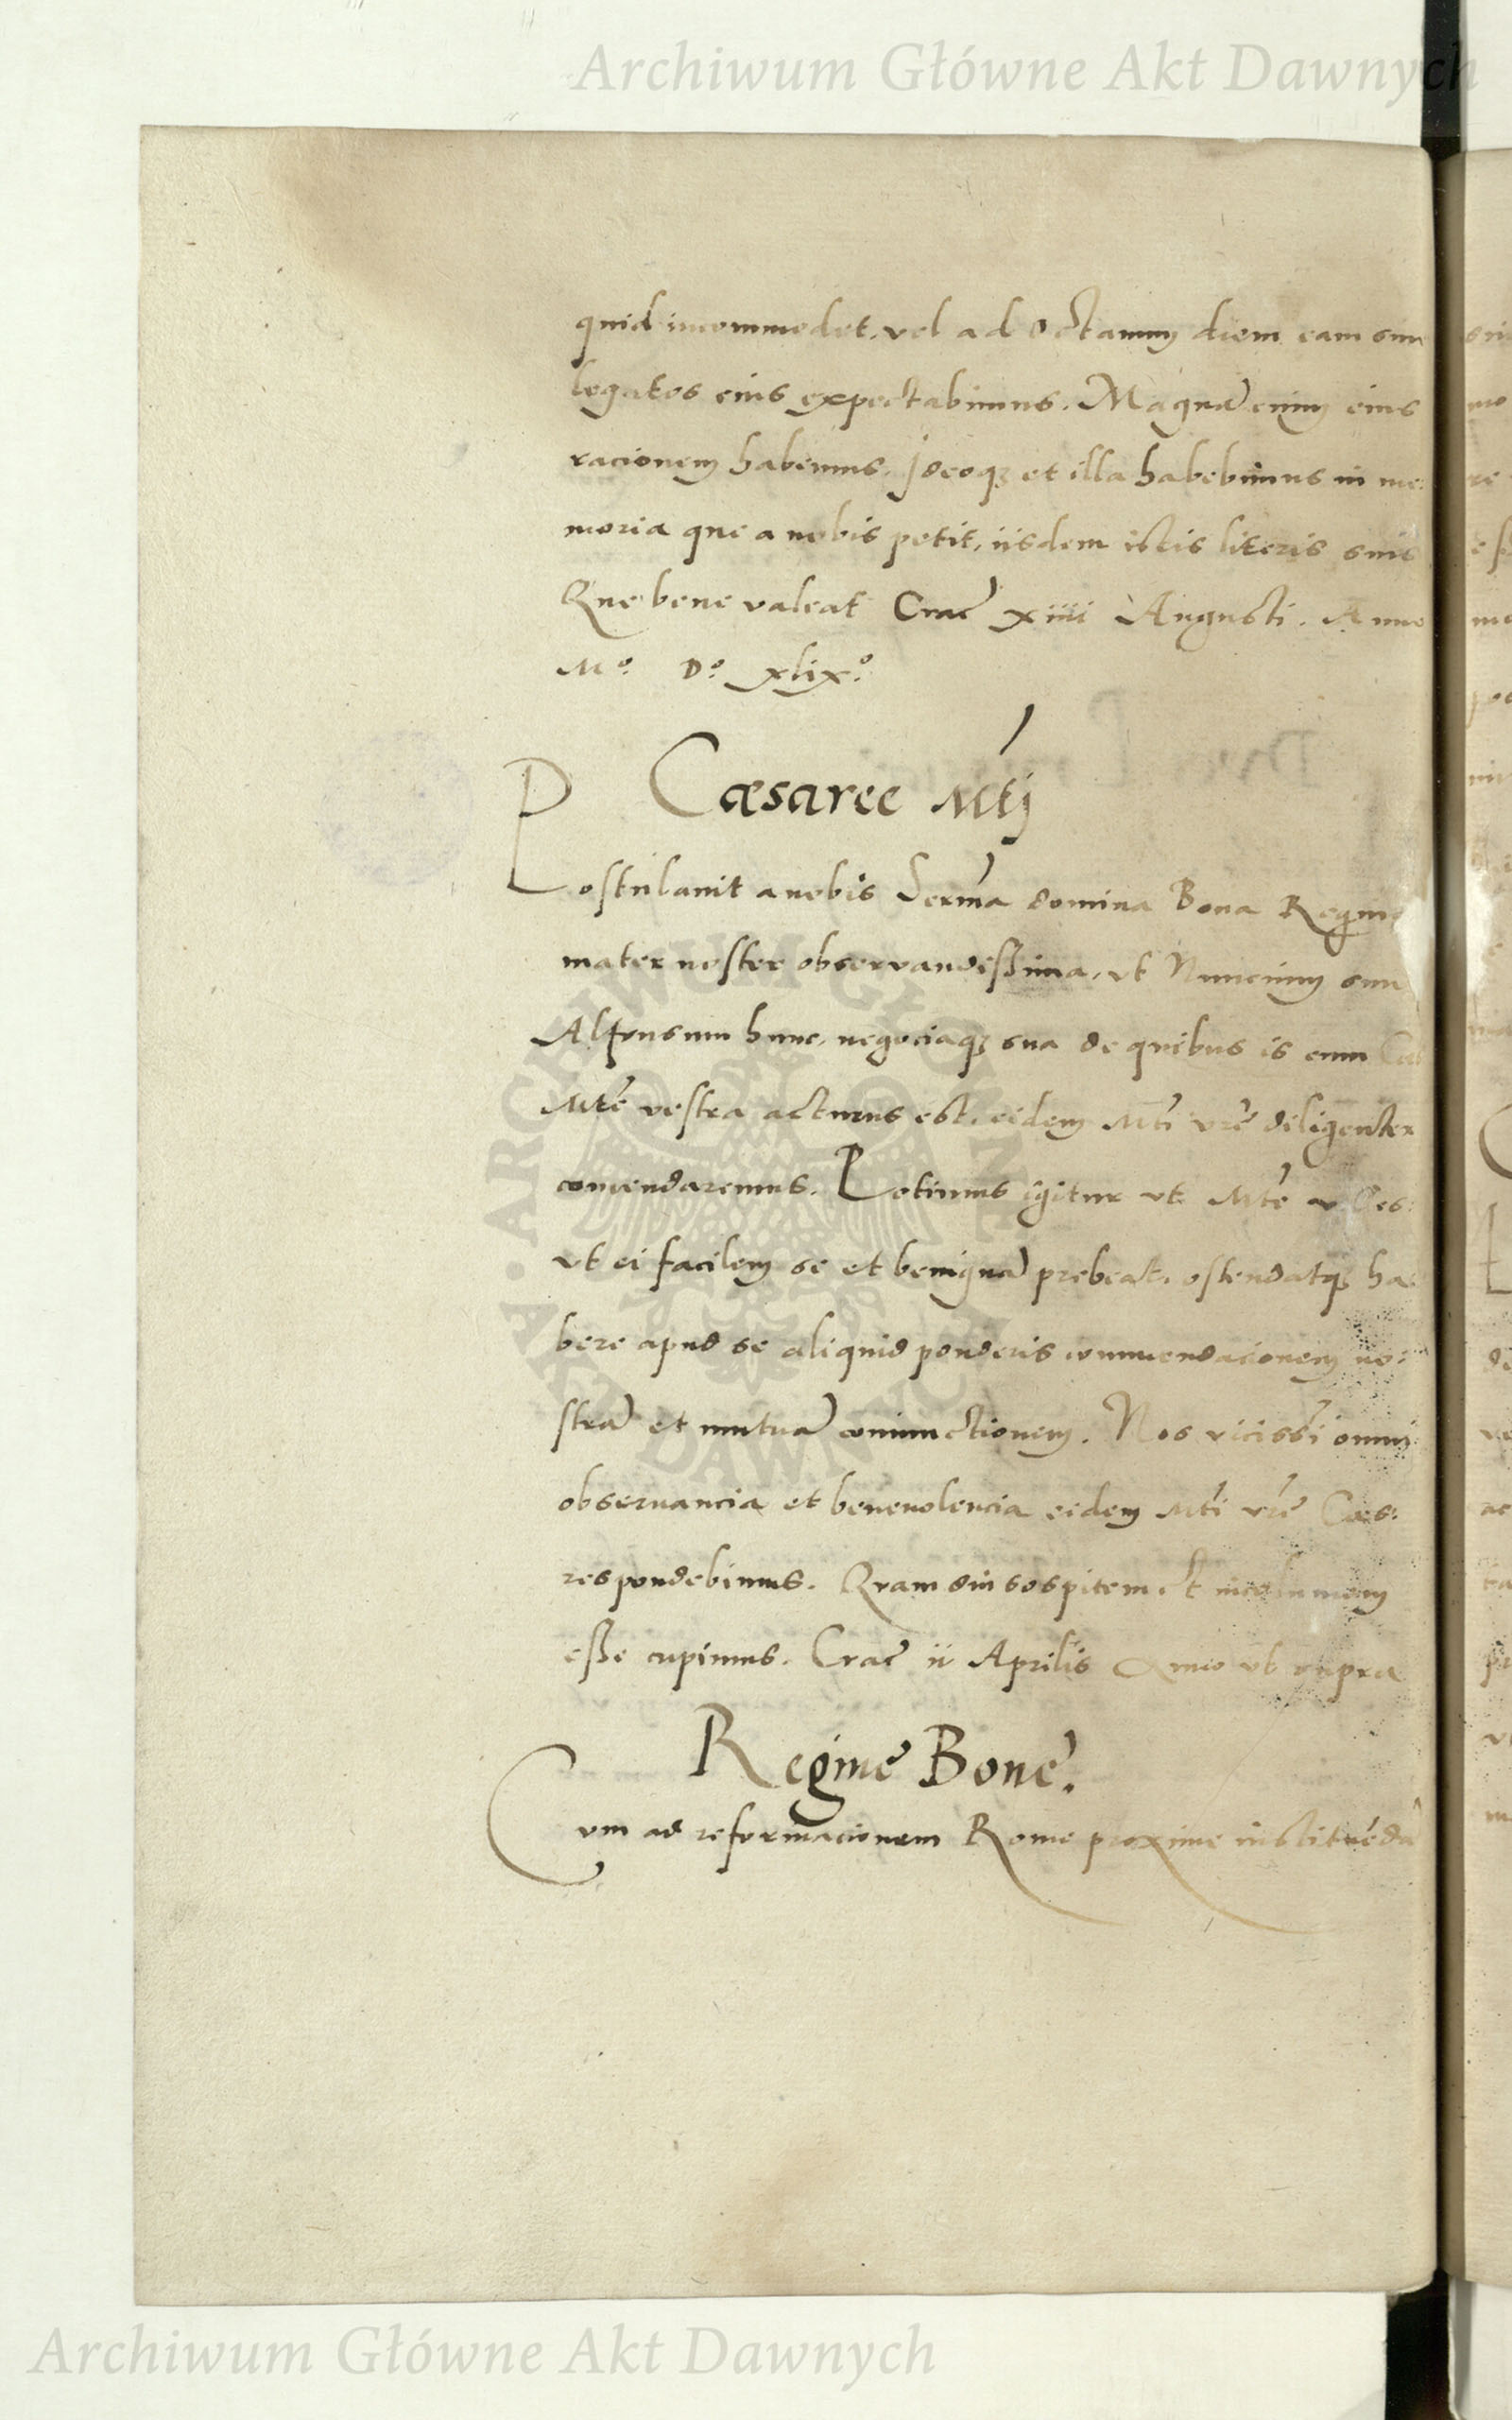 Archiwum Główne Akt Dawnych
quid incommodet, vel ad Octauum diem eam suu
legatos eius expectabimus. Magnā enim eius
racionem habemus. Ideoq; et illa habebimus in me:
moria que a nobis petit, iisdem istis literis suis
Que bene valeat Crac̄ xiiii Augusti. Anno
Mº. Dº. xlixº.
Cæsaree Mtj
Postulauit a nobis Serma domina Bona Regina
mater noster obseruandissima, vt Nuncium suu
Alfonsum hunc, negociaq; sua de quibus is cum
Mte vestra acturus est, eidem Mti vrē diligenter
comendaremus. Petimus igitur vt Mte v Ces:
vt ei facilem se et benignā prebeat, ostendatq; ha:
bere apud se aliquid ponderis commendacionem no:
strā et mutuā coniunctionem. Nos vicissī omni
obseruancia et beneuolencia eidem Mti vrē Caes:
respondebimus. Quam diu sospitem et incolumem
esse cupimus. Crac̄ ii Aprilis Anno vt supra
Regine Bone.
Cum ad reformacionem Rome proxime instituēdā
ARCHIWUM GŁÓWNE AKT DAWNYCH
Archiwum Główne Akt Dawnych